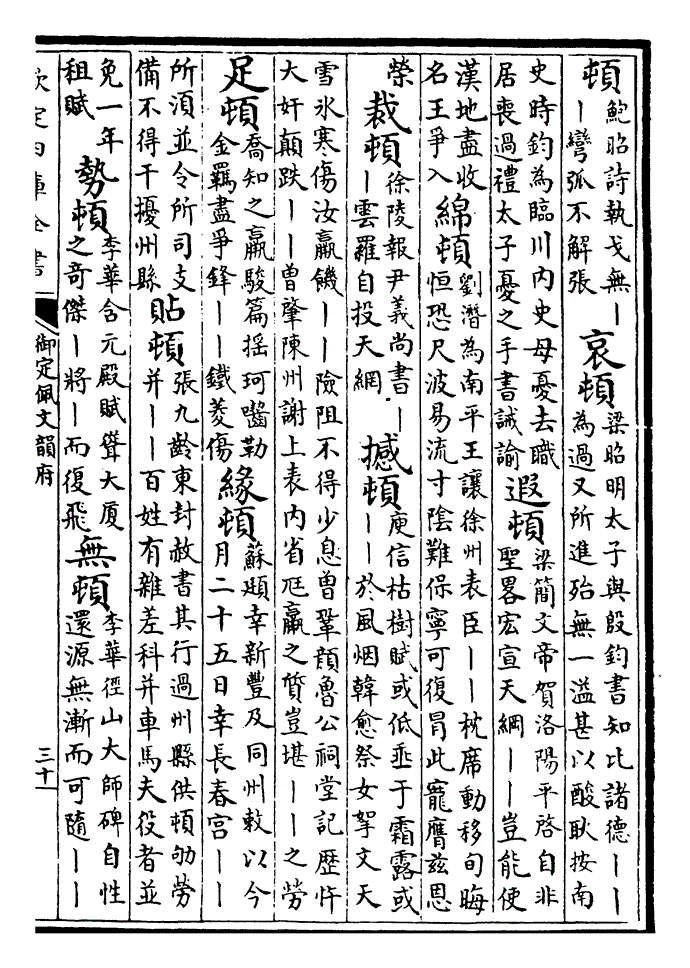 頓鮑昭詩執戈無｜｜彎弧不解張哀頓梁昭明太子與殷鈞書知比諸德｜｜為過又所進殆無一溢甚以酸耿按南
史時鈞為臨川内史母憂去職居喪過禮太子憂之手書誡諭遐頓梁簡文帝賀洛陽平啓自非聖畧宏宣天綱｜｜豈能使
漢地盡收名王爭入綿頓劉潛為南平王讓徐州表臣｜｜枕席動移旬晦恒恐尺波易流寸陰難保寧可復冒此寵膺兹恩
榮裁頓徐陵報尹義尚書｜｜雲羅自投天網撼頓庾信枯樹賦或低垂于霜露或｜｜於風烟韓愈祭女挐文天
雪氷寒傷汝羸饑｜｜險阻不得少息曾鞏顔魯公祠堂記歷忤大奸顛跌｜｜曾肇陳州謝上表内省尫羸之質豈堪｜｜之勞
足頓喬知之羸駿篇揺珂嚙勒金羈盡爭鋒｜｜鐵菱傷緣頓蘇頲幸新豐及同州敕以今月二十五日幸長春宫｜｜
所湏並令所司支備不得干擾州縣貼頓張九齡東封赦書其行過州縣供頓劬勞并｜｜百姓有雜差科并車馬夫役者並
免一年租賦勢頓李華含元殿賦聳大厦之奇傑｜將｜而復飛無頓李華徑山大師碑自性還源無漸而可隨｜｜
欽定四庫全書
御定佩文韻府
三十